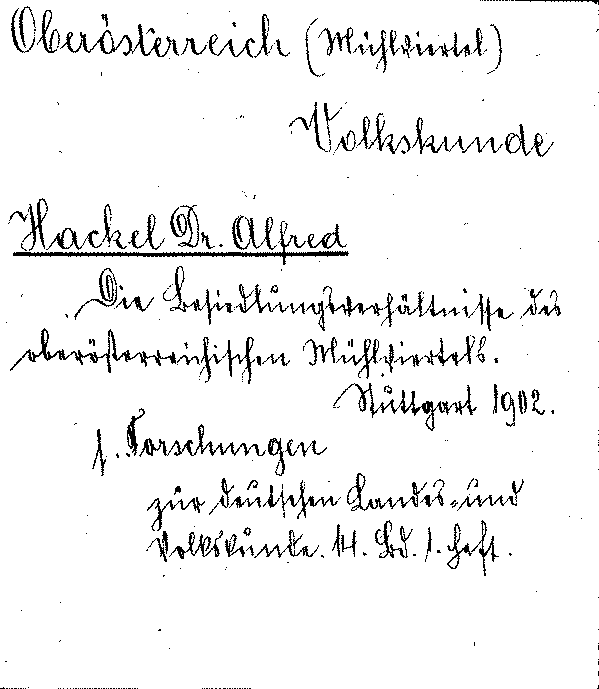 Oberösterreich (Mühlviertel)
Volkskunde
Hackel Dr. Alfred
Die Besiedlungsverhältnisse des
oberösterreichischen Mühlviertels.
Stuttgart 1902.
s. Forschungen
zur deutschen Landes- und
Volkskunde. 14. Bd. 1. Heft.